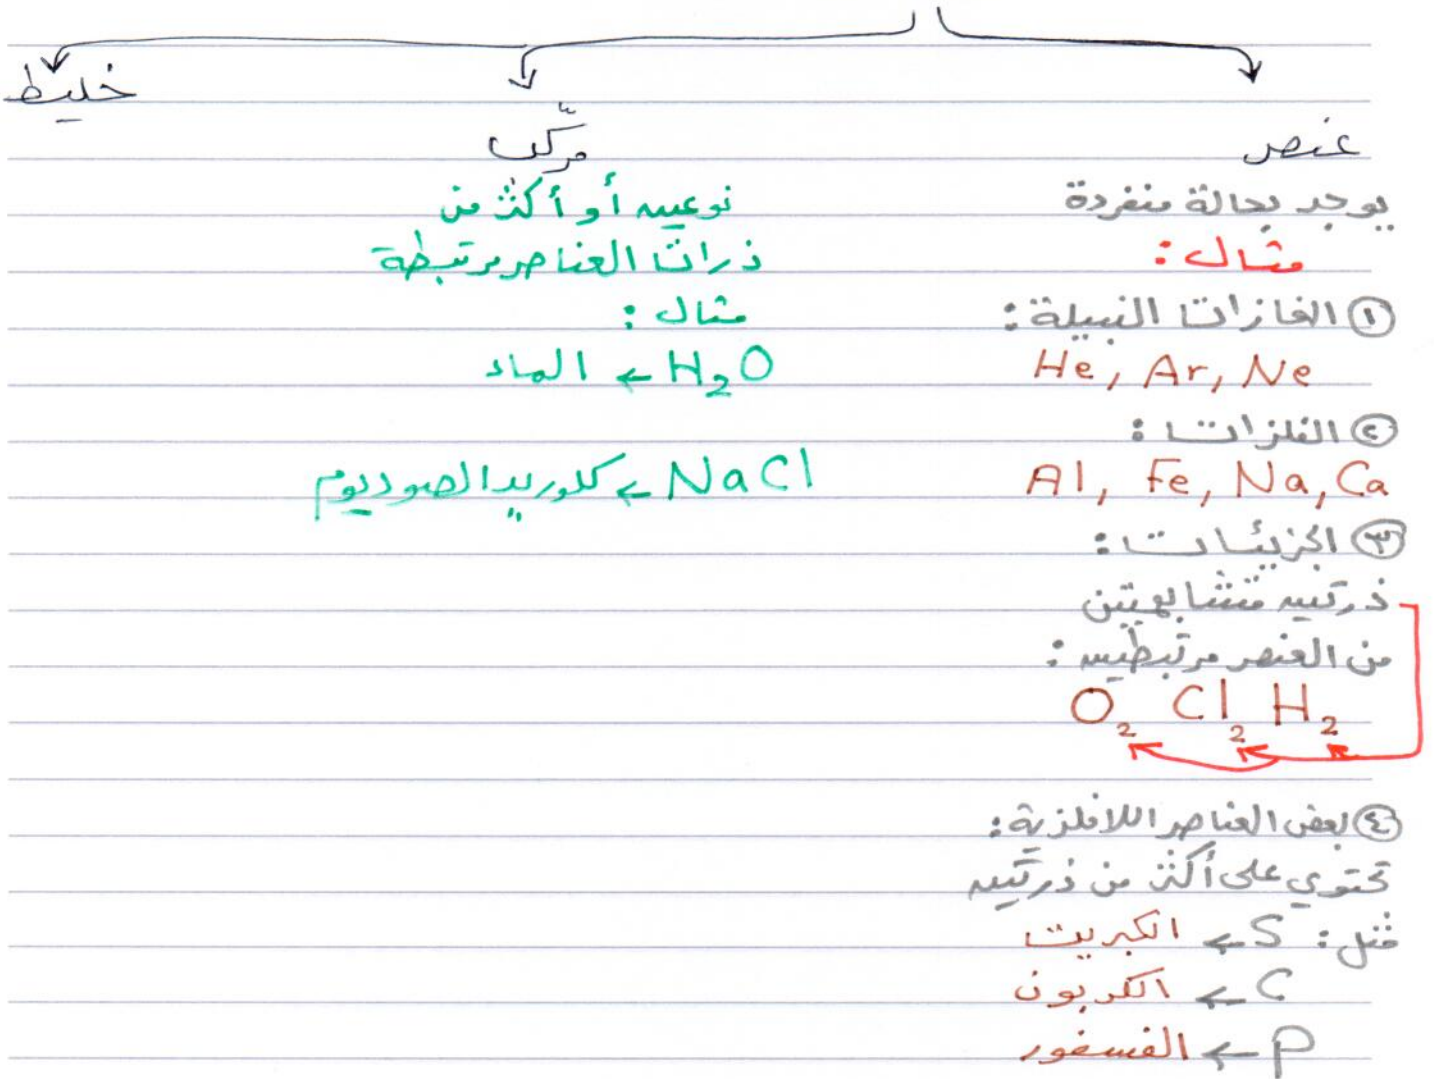 عنصر
يوجد بحالة منفردة
مثال:
① الغازات النبيلة:
He, Ar, Ne
② الفلزات:
Al, Fe, Na, Ca
③ الجزيئات:
ذرتين متشابهتين
من العنصر مرتبطين:
O₂ Cl₂ H₂
④ بعض العناصر اللافلزية:
تحتوي على أكثر من ذرتين
مثل: S ← الكبريت
C ← الكربون
P ← الفسفور
مركّب
نوعين أو أكثر من
ذرات العناصر مرتبطة
مثال:
H₂O ← الماء
NaCl ← كلوريد الصوديوم
خليط